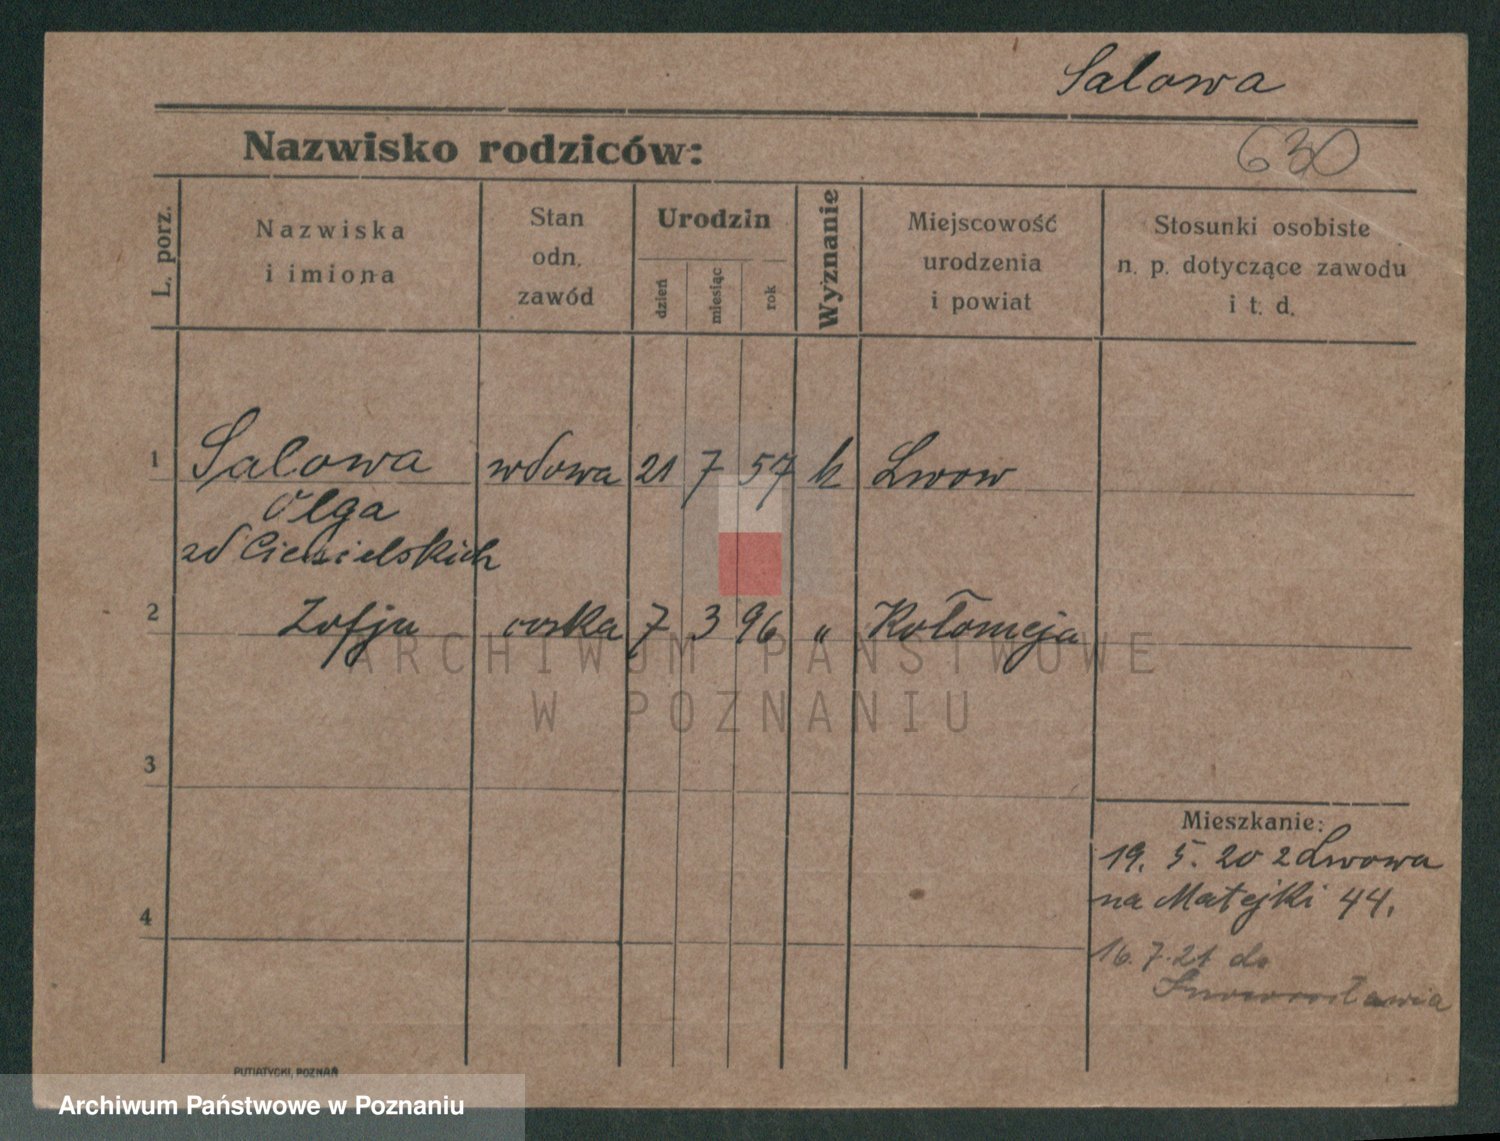 Salowa
630
Nazwisko rodziców:
L. porz.
Nazwiska
i imiona
Stan
odn.
zawód
Urodzin
dzień
miesiąc
rok
Wyznanie
Miejscowość
urodzenia
i powiat
Stosunki osobiste
n. p. dotyczące zawodu
i t. d.
1 Salowa wdowa 21 7 57 k Lwow
Olga
zd Ciesielskich
2 Zofja corka 7 3 96 " Kołomeja
3
4
Mieszkanie:
19. 5. 20 z Lwowa
na Matejki 44.
16. 7. 21 do
ARCHIWUM PAŃSTWOWE
W POZNANIU
PUTIATYCKI, POZNAŃ
Archiwum Państwowe w Poznaniu